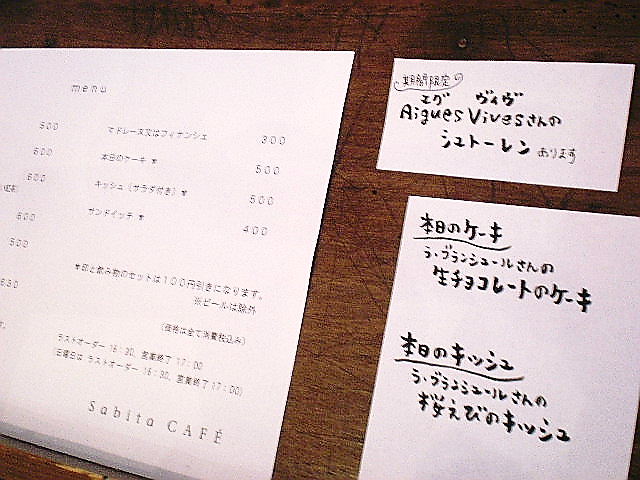 menu
500
マドレーヌ又はフィナンシェ 300
600
本日のケーキ ＊ 500
600
キッシュ (サラダ付き) ＊ 500
600
サンドイッチ ＊ 400
500
＊印と飲み物のセットは１００円引きになります。
※ビールは除外
(価格は全て消費税込み)
ラストオーダー 16:30, 営業終了 17:00
(日曜日は ラストオーダー 16:30, 営業終了 17:00)
Sabita CAFÉ
期間限定
エグ ヴィヴ
Aigues Vivesさんの
シュトーレン あります
本日のケーキ
ラ・ブランシュールさんの
生チョコレートのケーキ
本日のキッシュ
ラ・ブランシュールさんの
桜えびのキッシュ